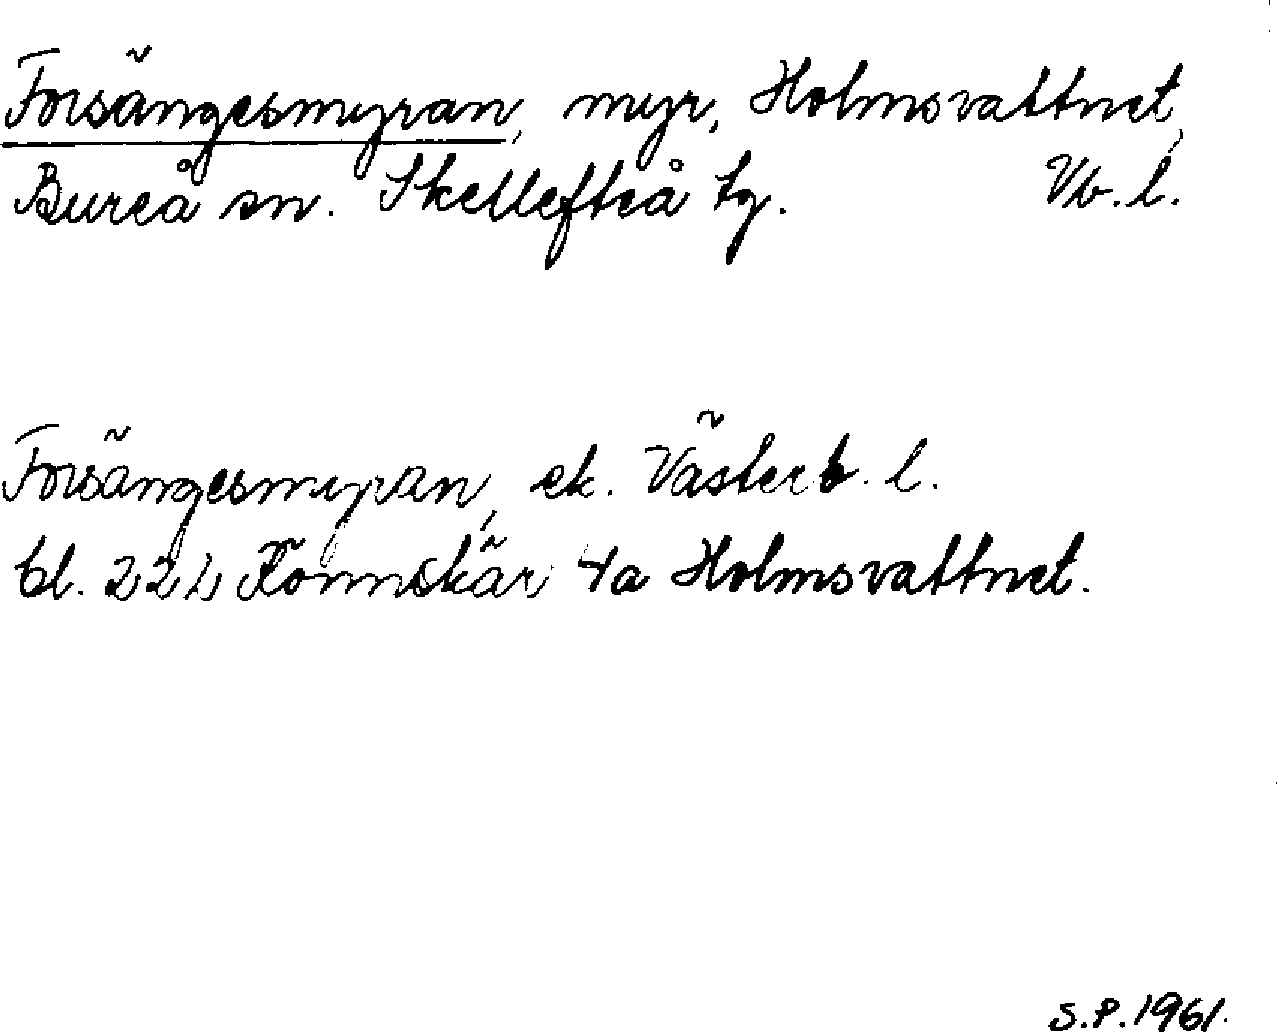 Forsängesmyran, myr, Holmsvattnet,
Bureå sn. Skellefteå tg. Vb. l.
Forsängesmyran, ek. Västerb. l.
bl. 224 Rönnskär 4a Holmsvattnet.
S.P. 1961.